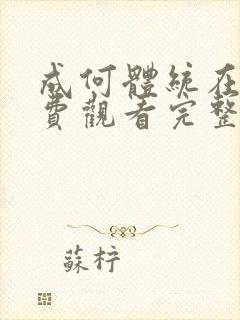 成何體統在
費觀看完整
蘇梓